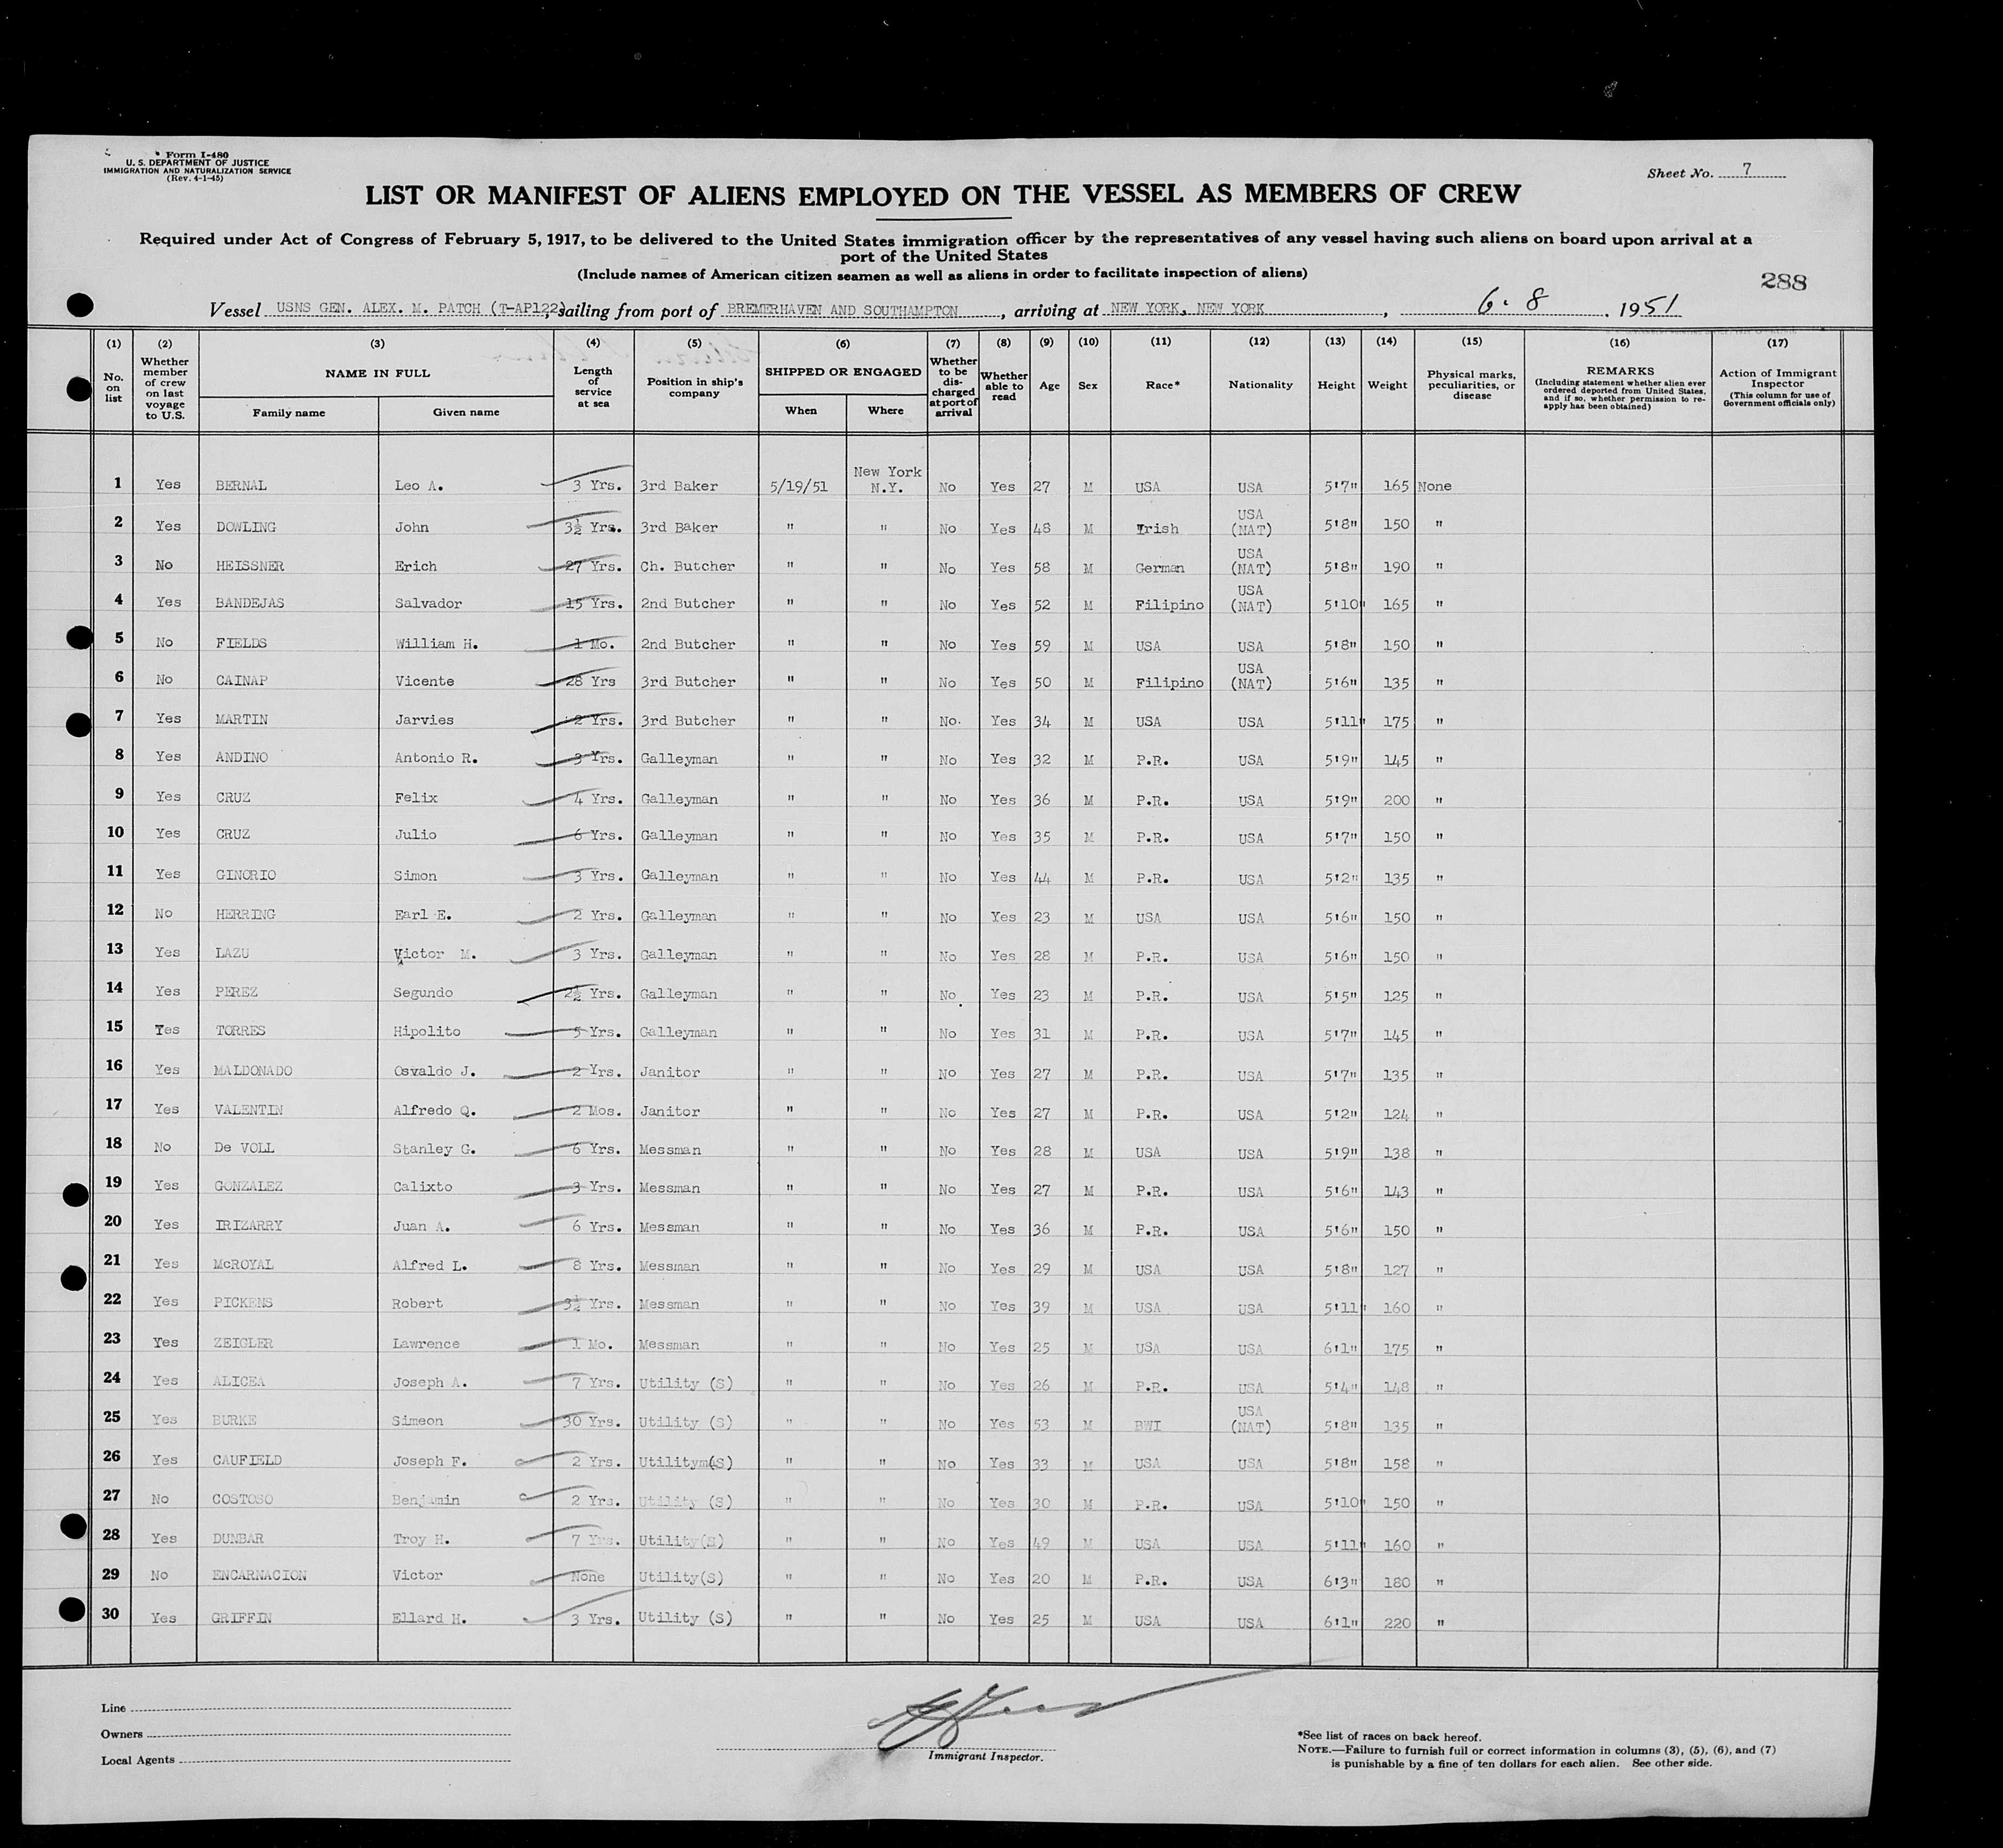 Form I-480
U. S. DEPARTMENT OF JUSTICE
IMMIGRATION AND NATURALIZATION SERVICE
(Rev. 4-1-45)
Sheet No. 7
LIST OR MANIFEST OF ALIENS EMPLOYED ON THE VESSEL AS MEMBERS OF CREW
Required under Act of Congress of February 5, 1917, to be delivered to the United States immigration officer by the representatives of any vessel having such aliens on board upon arrival at a
port of the United States
(Include names of American citizen seamen as well as aliens in order to facilitate inspection of aliens)
288
Vessel USNS GEN. ALEX. M. PATCH (T-AP122) sailing from port of BREMERHAVEN AND SOUTHAMPTON, arriving at NEW YORK, NEW YORK, 6. 8. 1951
(1) No. on list (2) Whether member of crew on last voyage to U.S. (3) NAME IN FULL Family name Given name (4) Length of service at sea (5) Position in ship's company (6) SHIPPED OR ENGAGED When Where (7) Whether to be discharged at port of arrival (8) Whether able to read (9) Age (10) Sex (11) Race* (12) Nationality (13) Height (14) Weight (15) Physical marks, peculiarities, or disease (16) REMARKS (Including statement whether alien ever ordered deported from United States, and if so, whether permission to re-apply has been obtained) (17) Action of Immigrant Inspector (This column for use of Government officials only)
1 Yes BERNAL Leo A. 3 Yrs. 3rd Baker 5/19/51 New York N.Y. No Yes 27 M USA USA 5'7" 165 None
2 Yes DOWLING John 3½ Yrs. 3rd Baker " " No Yes 48 M Irish USA (NAT) 5'8" 150 "
3 No HEISSNER Erich 27 Yrs. Ch. Butcher " " No Yes 58 M German USA (NAT) 5'8" 190 "
4 Yes BANDEJAS Salvador 15 Yrs. 2nd Butcher " " No Yes 52 M Filipino USA (NAT) 5'10" 165 "
5 No FIELDS William H. 1 Mo. 2nd Butcher " " No Yes 59 M USA USA 5'8" 150 "
6 No CAINAP Vicente 28 Yrs 3rd Butcher " " No Yes 50 M Filipino USA (NAT) 5'6" 135 "
7 Yes MARTIN Jarvies 2 Yrs. 3rd Butcher " " No. Yes 34 M USA USA 5'11" 175 "
8 Yes ANDINO Antonio R. 3 Yrs. Galleyman " " No Yes 32 M P.R. USA 5'9" 145 "
9 Yes CRUZ Felix 4 Yrs. Galleyman " " No Yes 36 M P.R. USA 5'9" 200 "
10 Yes CRUZ Julio 6 Yrs. Galleyman " " No Yes 35 M P.R. USA 5'7" 150 "
11 Yes GINORIO Simon 3 Yrs. Galleyman " " No Yes 44 M P.R. USA 5'2" 135 "
12 No HERRING Earl E. 2 Yrs. Galleyman " " No Yes 23 M USA USA 5'6" 150 "
13 Yes LAZU Victor M. 3 Yrs. Galleyman " " No Yes 28 M P.R. USA 5'6" 150 "
14 Yes PEREZ Segundo 2½ Yrs. Galleyman " " No Yes 23 M P.R. USA 5'5" 125 "
15 Yes TORRES Hipolito 5 Yrs. Galleyman " " No Yes 31 M P.R. USA 5'7" 145 "
16 Yes MALDONADO Osvaldo J. 2 Yrs. Janitor " " No Yes 27 M P.R. USA 5'7" 135 "
17 Yes VALENTIN Alfredo Q. 2 Mos. Janitor " " No Yes 27 M P.R. USA 5'2" 124 "
18 No De VOLL Stanley G. 6 Yrs. Messman " " No Yes 28 M USA USA 5'9" 138 "
19 Yes GONZALEZ Calixto 3 Yrs. Messman " " No Yes 27 M P.R. USA 5'6" 143 "
20 Yes IRIZARRY Juan A. 6 Yrs. Messman " " No Yes 36 M P.R. USA 5'6" 150 "
21 Yes McROYAL Alfred L. 8 Yrs. Messman " " No Yes 29 M USA USA 5'8" 127 "
22 Yes PICKENS Robert 3½ Yrs. Messman " " No Yes 39 M USA USA 5'11" 160 "
23 Yes ZEIGLER Lawrence 1 Mo. Messman " " No Yes 25 M USA USA 6'1" 175 "
24 Yes ALICEA Joseph A. 7 Yrs. Utility (S) " " No Yes 26 M P.R. USA 5'4" 148 "
25 Yes BURKE Simeon 30 Yrs. Utility (S) " " No Yes 53 M BWI USA (NAT) 5'8" 135 "
26 Yes CAUFIELD Joseph F. 2 Yrs. Utilitym(S) " " No Yes 33 M USA USA 5'8" 158 "
27 No COSTOSO Benjamin 2 Yrs. Utility (S) " " No Yes 30 M P.R. USA 5'10" 150 "
28 Yes DUNBAR Troy H. 7 Yrs. Utility(S) " " No Yes 49 M USA USA 5'11" 160 "
29 No ENCARNACION Victor None Utility(S) " " No Yes 20 M P.R. USA 6'3" 180 "
30 Yes GRIFFIN Ellard H. 3 Yrs. Utility (S) " " No Yes 25 M USA USA 6'1" 220 "
Line
Owners
Local Agents
Immigrant Inspector.
*See list of races on back hereof.
NOTE.—Failure to furnish full or correct information in columns (3), (5), (6), and (7)
is punishable by a fine of ten dollars for each alien. See other side.